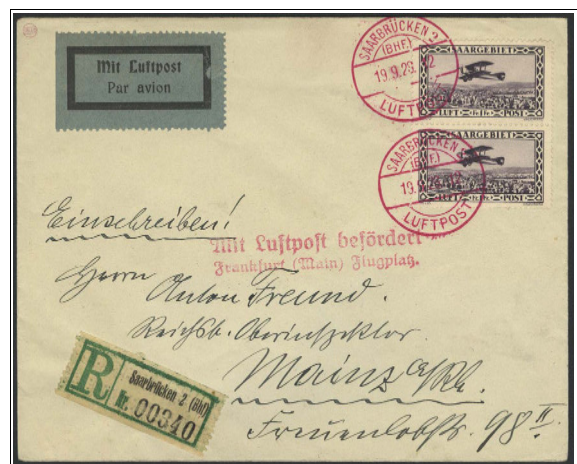 Mit Luftpost
Par avion
SAARBRÜCKEN 2
(BHF.)
19.9.28. 12
LUFTPOST
SAARGEBIET
LUFT POST
SAARBRÜCKEN 2
(BHF.)
19.9.
LUFTPOST
SAARGEBIET
POST
Einschreiben!
Mit Luftpost befördert
Frankfurt (Main) Flugplatz.
Herrn Anton Freund.
Reichsb. Oberinspektor.
Mainz a/Rh.
Frauenlobstr. 98 II
R Saarbrücken 2. (Bhf)
Nr. 00340